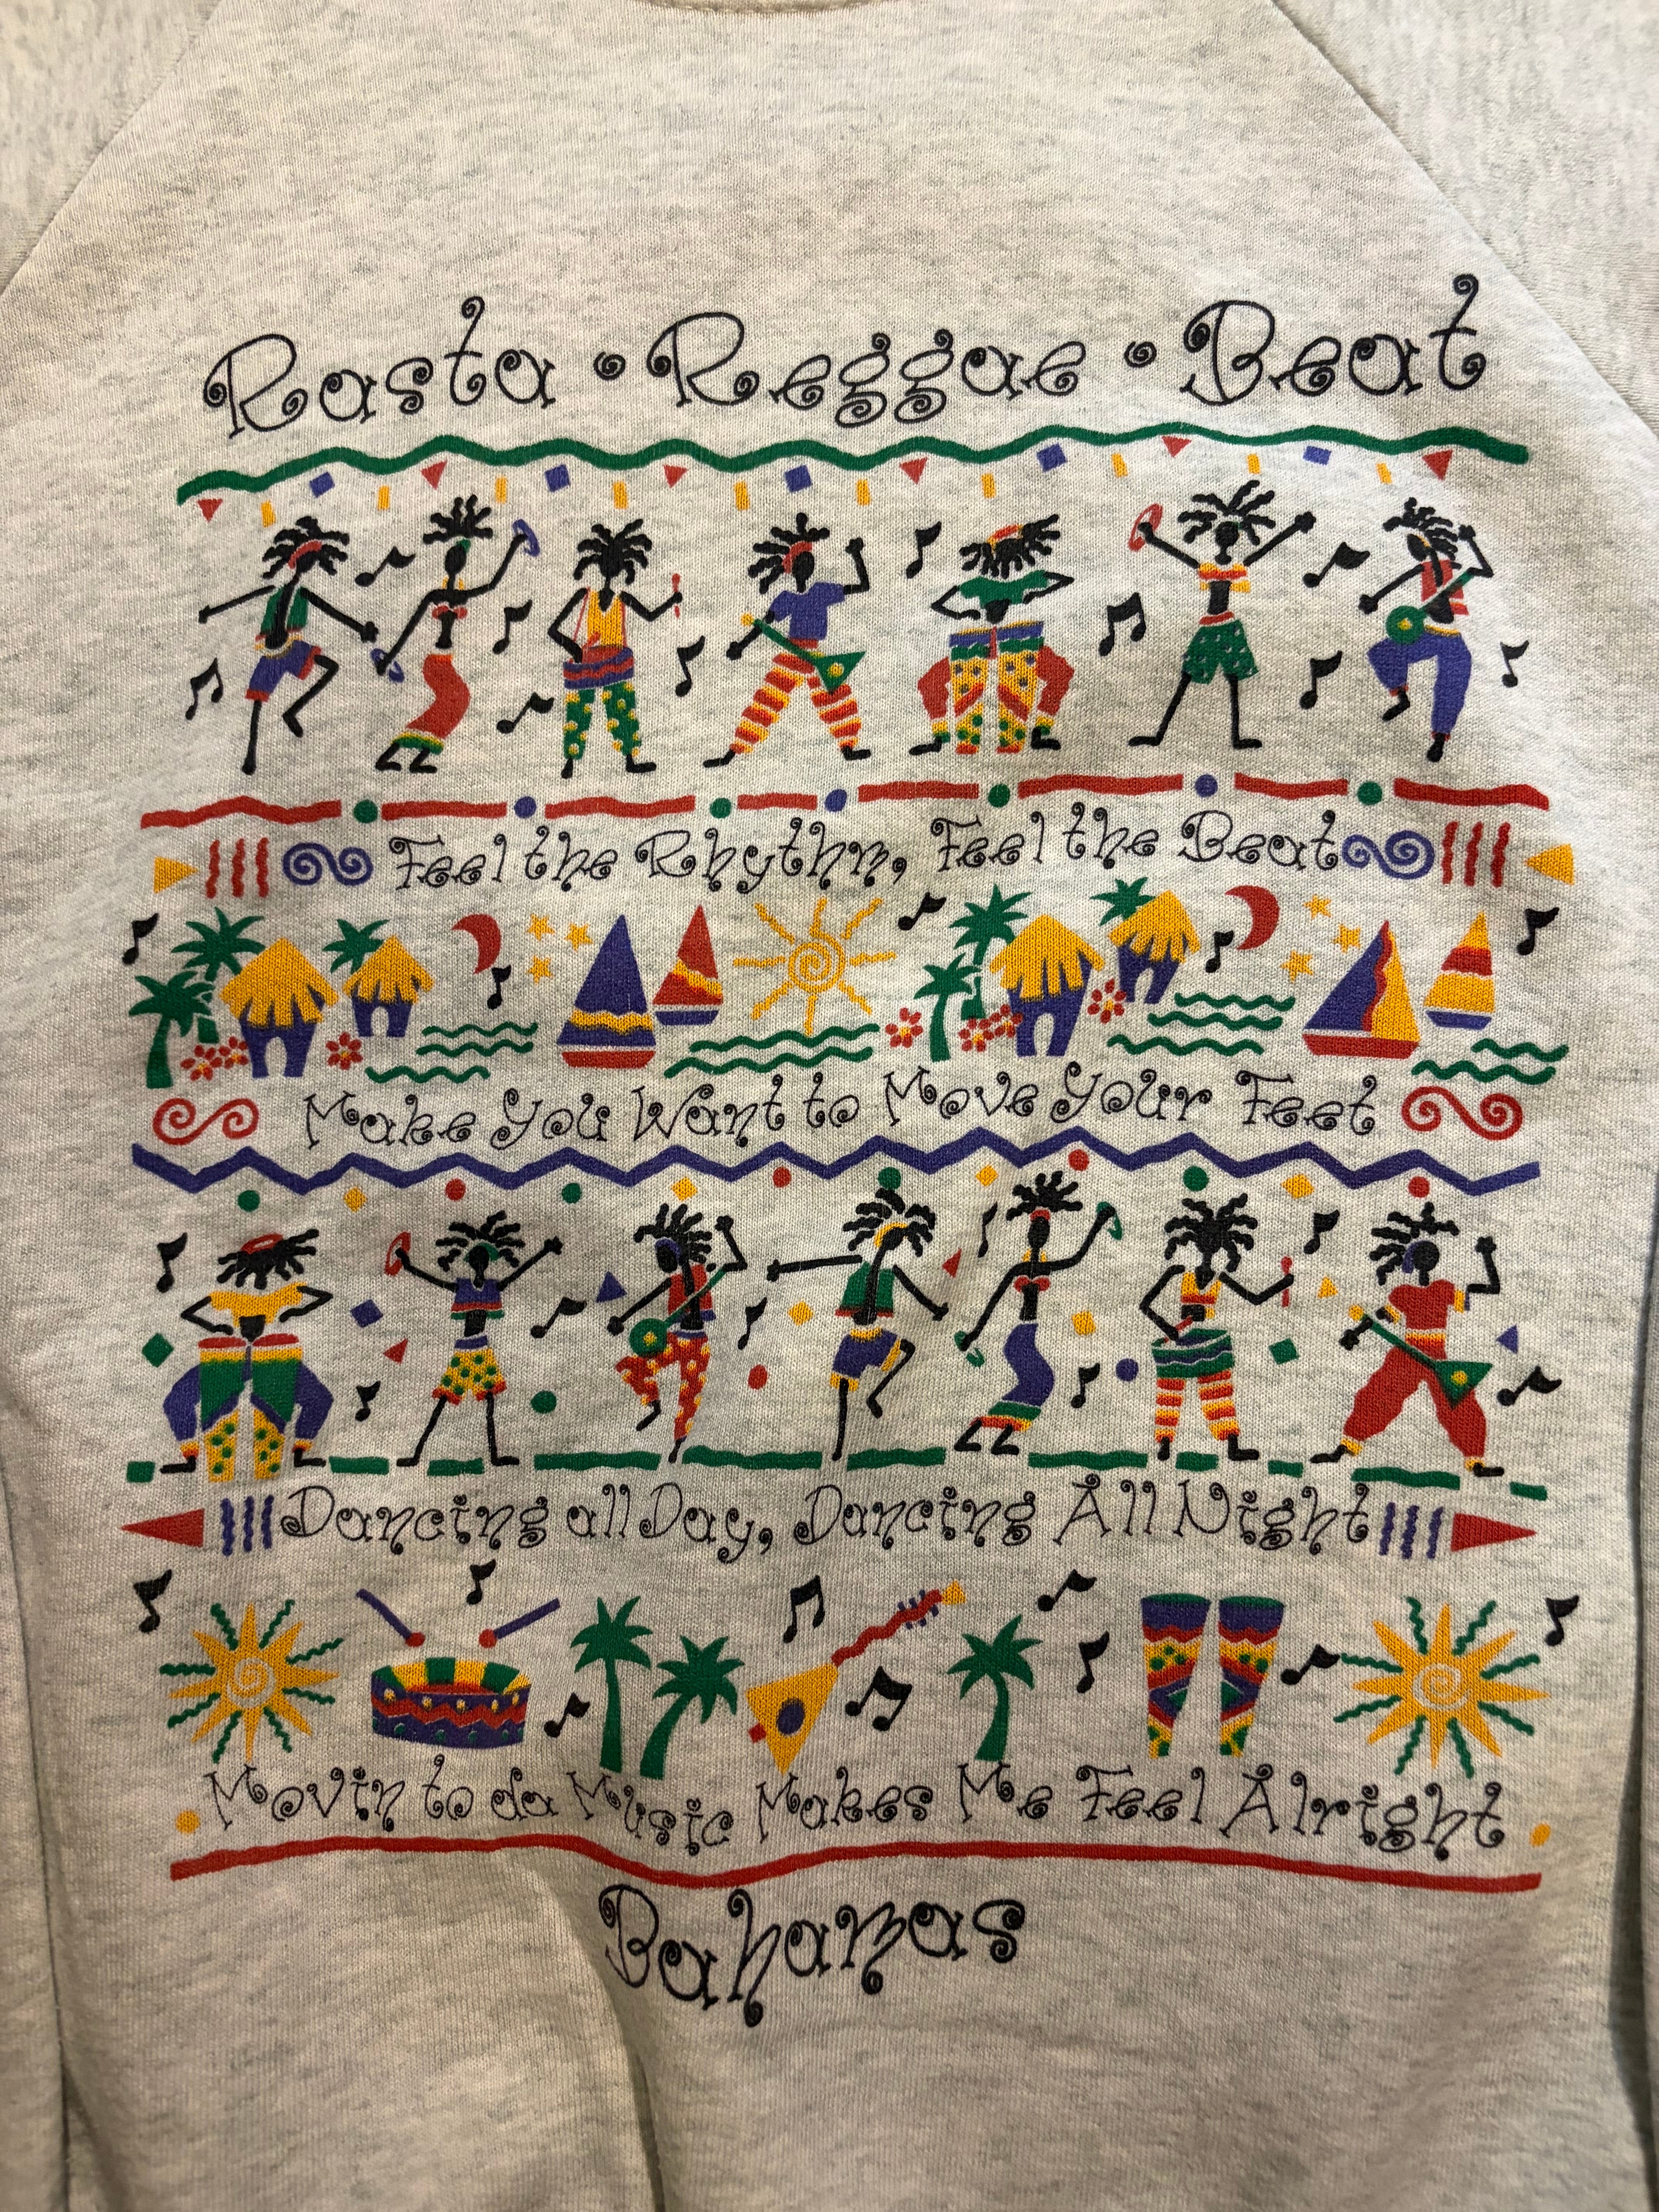 Rasta • Reggae • Beat
Feel the Rhythm, Feel the Beat
Make You Want to Move Your Feet
Dancing all Day, Dancing All Night
Movin to da Music Makes Me Feel Alright
Bahamas